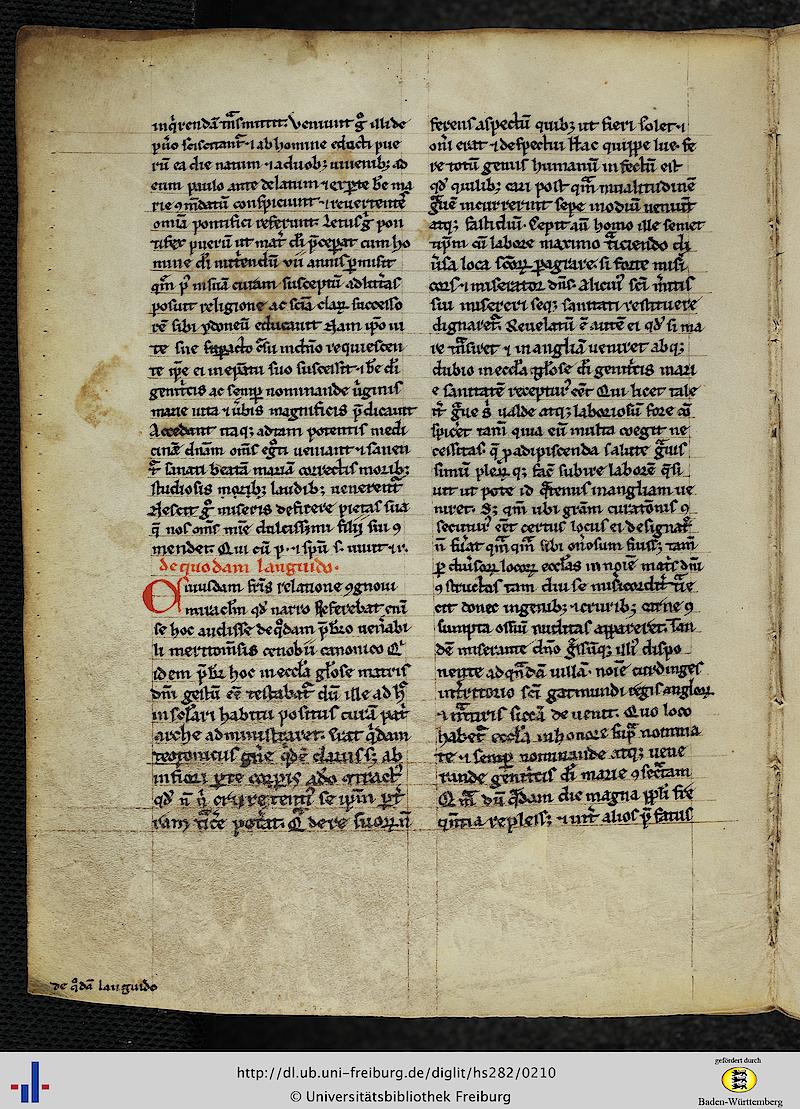 inqͥrendā trͣnsmittit. Veniunt gͦ illi de
puͦ sciscitant̃ ⁊ ab homine educti pue
rū ea die natum ⁊ a duob; iuuenib; ad
eum paulo ante delatum ⁊ ex ꝑte bẽ ma
rie ꝯmdatū conspiciunt ⁊ reuertentes
omīa pontifici referunt. Letus gͦ pon
tifex puerū ut mat̃ dī p̄cepat cum ho
mine dī nutriendū vii annis ꝑmisit
posuit religione ac sciā clarꝰ successo
rē sibi ydoneū educauit Nam ipo in
te sue
te ipe ei in ep̄atu suo successit ⁊ bē dī
genitͥcis ac semꝑ nominande uͥginis
marie uita ⁊ ubis magnificis p̄dicauit
Accedant itaq; ad tam potentis medi
cinā dnām oms egͥ ueniant ⁊ sanen
t̃ sanati beatā mariā correctis morib;
studiosis morib; laudib; uenerent̃
Nescit gͦ miseris desistere pietas sua
q̄ nos oms mīe dulcissimi filij sui ꝯ
mendet Qui cū p. ⁊ spū s. uiuit ⁊ r.
de quodam languido.
Cuiusdam frīs relatione ꝯgnoui
miraclm qd narro Referebat enī
se hoc audisse de qͦdam p̄bro uenabi
li meritomīsis cenobii canonico Qͥ
idem p̄br hoc in eccla glōse matris
dnī gestū eē testabat̃ dū ille ad hͨ
in scolari habitu positus curā pat
arche administraret. Erat qͥdam
teotonicus gn̄e qͥdē clariss; ab
inferiori ꝑte corꝑis adeo ꝯtractꝰ
qd n̄
ram Qͥ de re suorū n̄
ferens aspectū quib; ut fieri solet ⁊
onī erat ⁊ despectui Hac quippe lue fe
re totū genus humanū infectū est
qd quilib; cari post qͣm inualitudinē
gͣuē incurrerint sepe in odiū ueniūt
atq; fastidiū. Cepit aūt homo ille semet
ipm cū labore maximo trͣiciendo di
uͥsa loca scōrꝝ pagrare. si forte misͥ
cors ⁊ miserator dns alicuiꝰ scī mͥitis
sui misereri seq; sanitati restituere
dignaret̃. Reuelatū ē autē ei qd si ma
re trͣnsiret ⁊ in angliā ueniret abq;
dubio in eccla glōse dī genitͥcis mari
e sanitatē recepturꝰ eēt Qui licet tale
it̃ gͣue sͥ ualde atq; laboriosū fore cō
spicet̃ tam̄ quia eū multa coegit ne
cessitas. qͥ p adipiscenda salute gͣuis
simū pleriq; facē subire laborē qͥsi
uit ut pote id qͣtenus in angliam ue
niret. S; qm̄ ubi grām curatōnis ꝯ
secuturꝰ eēt certus locus ei designat̃
n̄ fuͥat qͣmqͣm sibi onͥosum fuiss; tam̄
p diuͥsorꝝ locorꝝ ecclas in noīe matͥs dnī
ꝯstructas tam diu se misericordit̃
cit donec ingenib; ⁊ cruribꝫ carne ꝯ
sumpta ossiū nuditas appareret. Tan
dē miserante dno gͥssūq; illiꝰ dispo
nente ad qͣndā uillā noīe curdinges
in tͥritorio scī gatmundi regis anglorꝝ
deuenit. Quo loco
habet̃ eccla in honore supͣ nomina
te ⁊ semꝑ nominande atq; uene
rande genitͥcis dī marie ꝯsecͣtam
Qͣm dū qͣdam die magna ppli fre
qͣntia repless; ⁊ int̃ alios p̄fatus
de qͦdā languido
http://dl.ub.uni-freiburg.de/diglit/hs282/0210
© Universitätsbibliothek Freiburg
gefördert durch
Baden-Württemberg